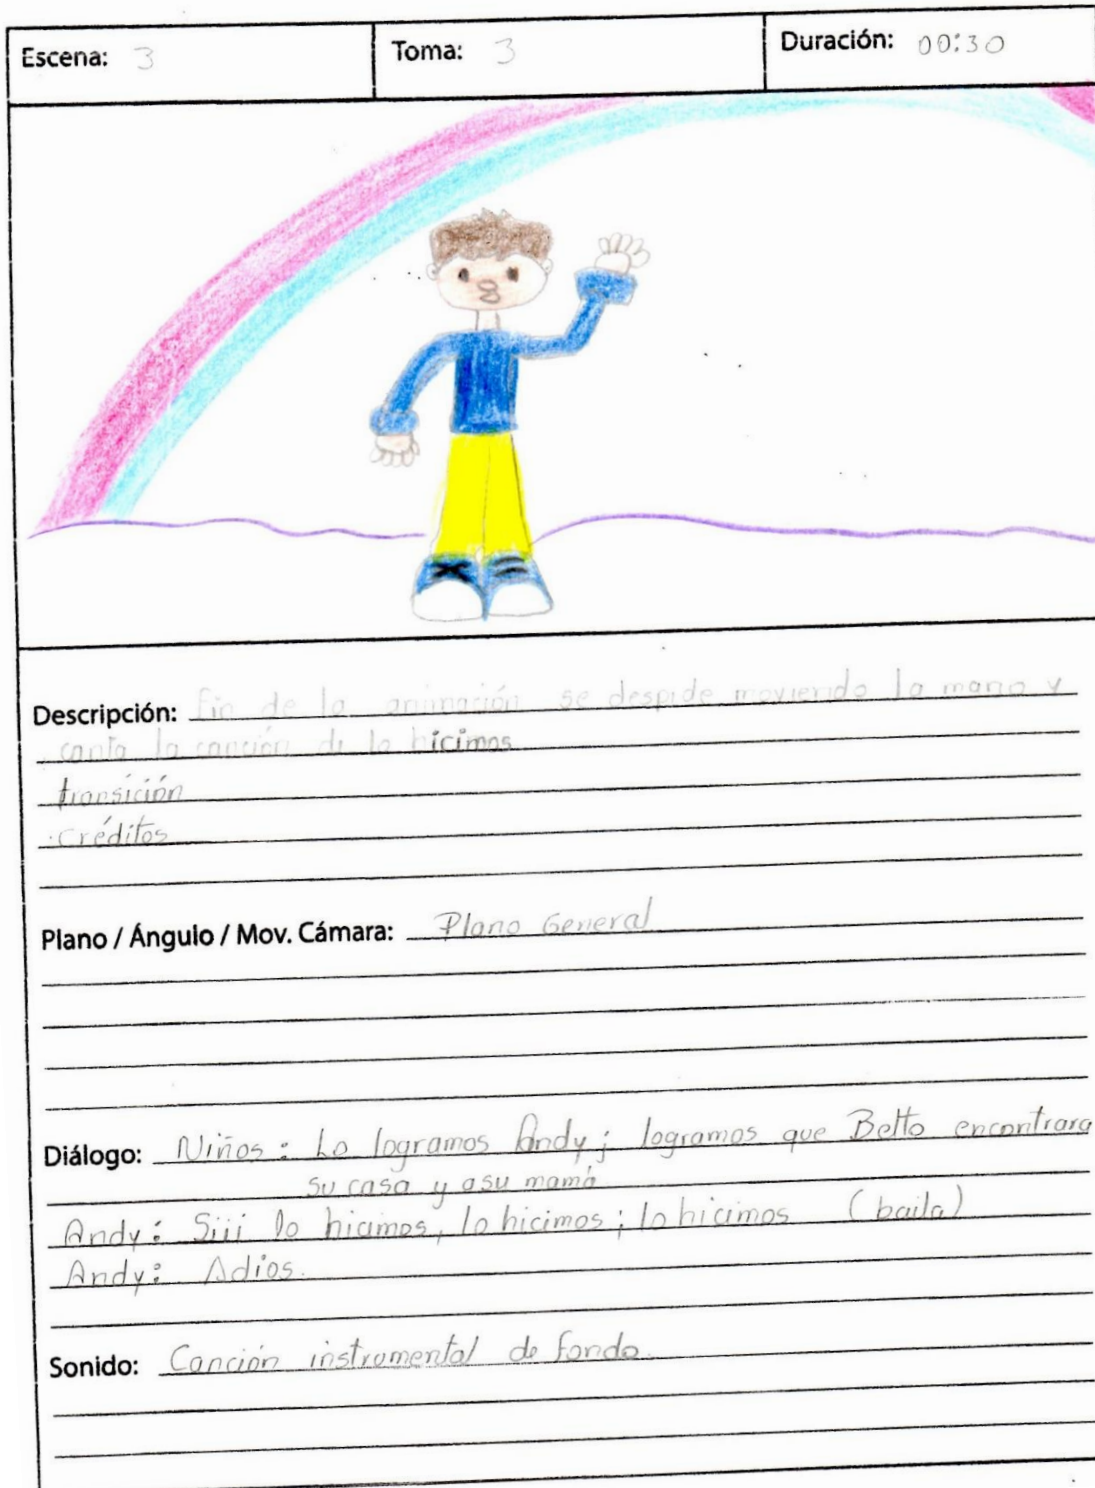 Escena: 3 Toma: 3 Duración: 00:30
Descripción: Fin de la animación se despide moviendo la mano y
canta la canción de lo hicimos
transición
créditos
Plano / Ángulo / Mov. Cámara: Plano General
Diálogo: Niños: Lo logramos Andy; logramos que Betto encontrara
su casa y asu mamá
Andy: Siii lo hicimos, lo hicimos; lo hicimos (baila)
Andy: Adios.
Sonido: Canción instrumental de fondo.